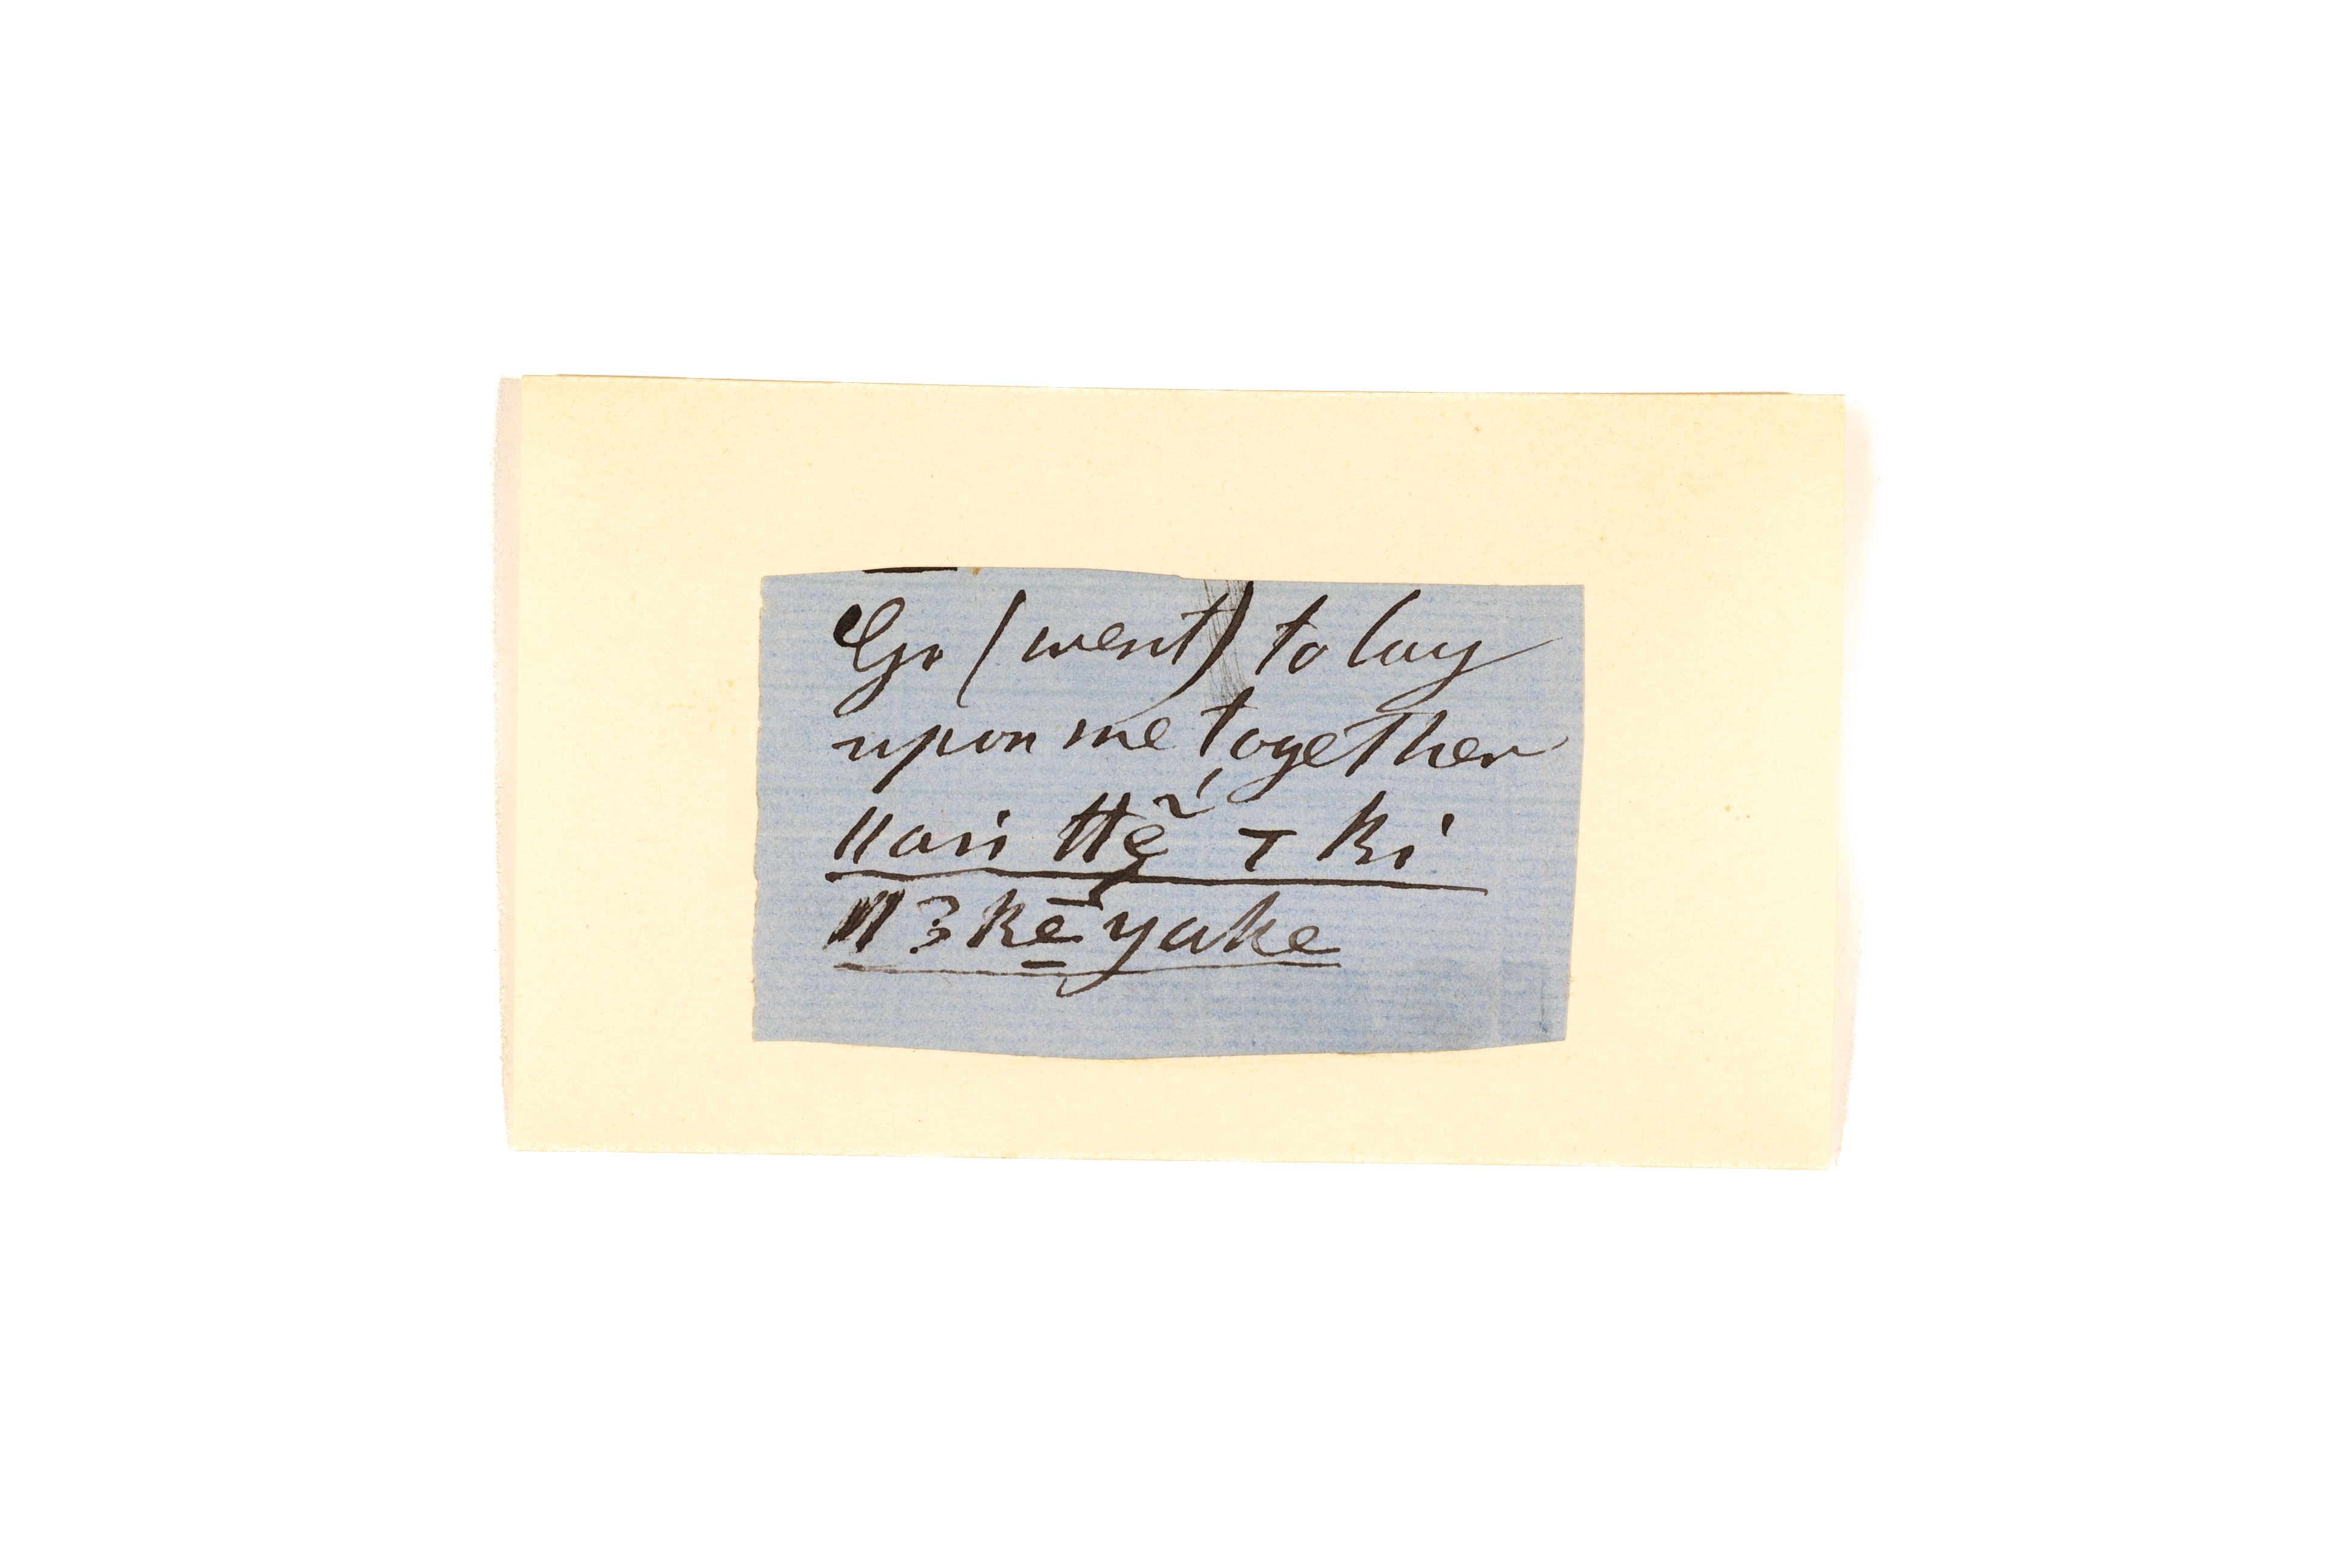 Go (went) to lay
upon me together
ǁari ǂẽ́ т ki
ǁʒkē̱yake